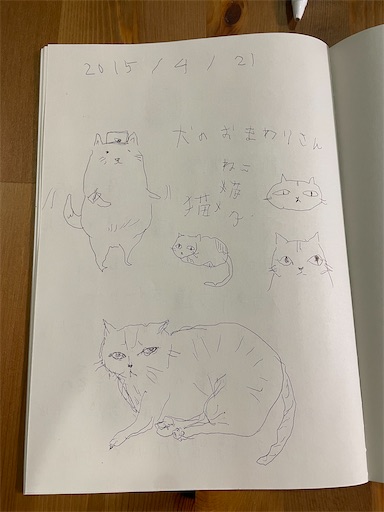 2015/4/21
犬のおまわりさん
ねこ
猫
猫